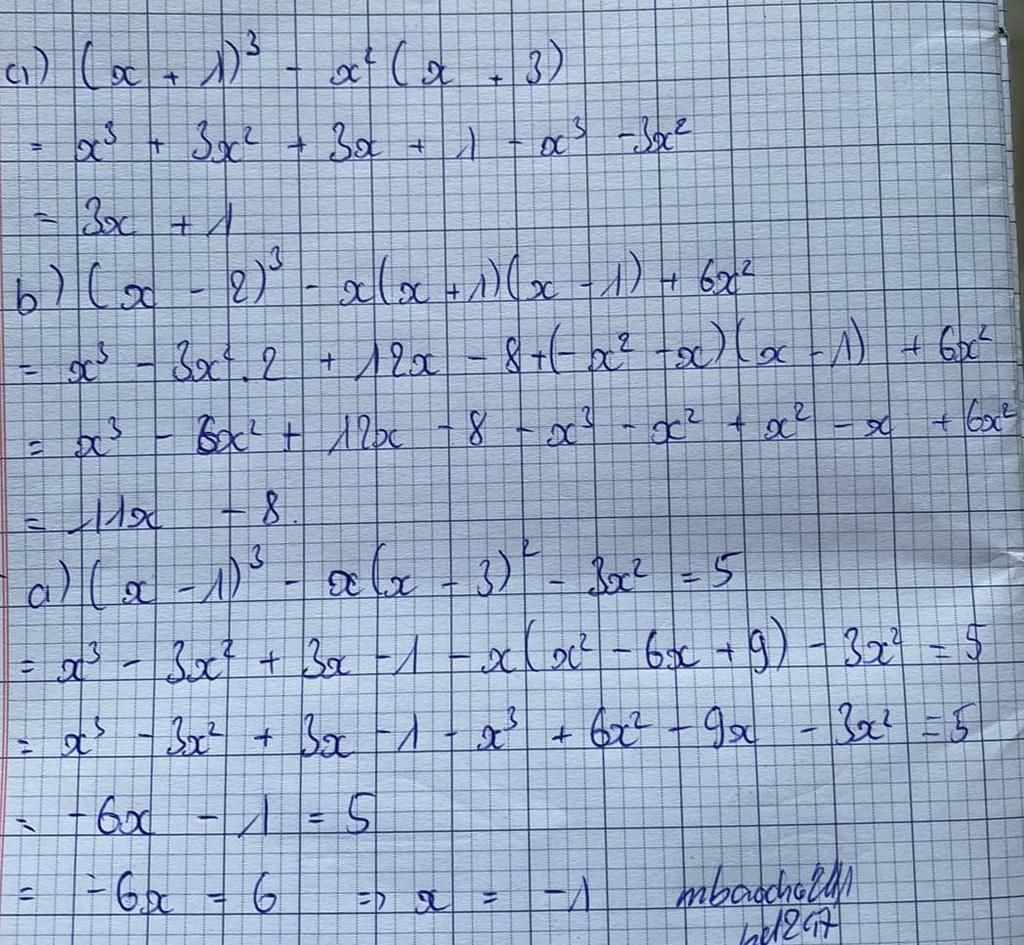 a) (x + 1)³ - x² (x + 3)
= x³ + 3x² + 3x + 1 - x³ - 3x²
= 3x + 1
b) (x - 2)³ - x(x + 1)(x - 1) + 6x²
= x³ - 3x². 2 + 12x - 8 + (- x² - x)(x - 1) + 6x²
= x³ - 6x² + 12x - 8 - x³ - x² + x² - x + 6x²
= 11x - 8.
a) (x - 1)³ - x(x - 3)² - 3x² = 5
= x³ - 3x² + 3x - 1 - x(x² - 6x + 9) - 3x² = 5
= x³ - 3x² + 3x - 1 - x³ + 6x² - 9x - 3x² = 5
= -6x - 1 = 5
= -6x = 6 => x = -1